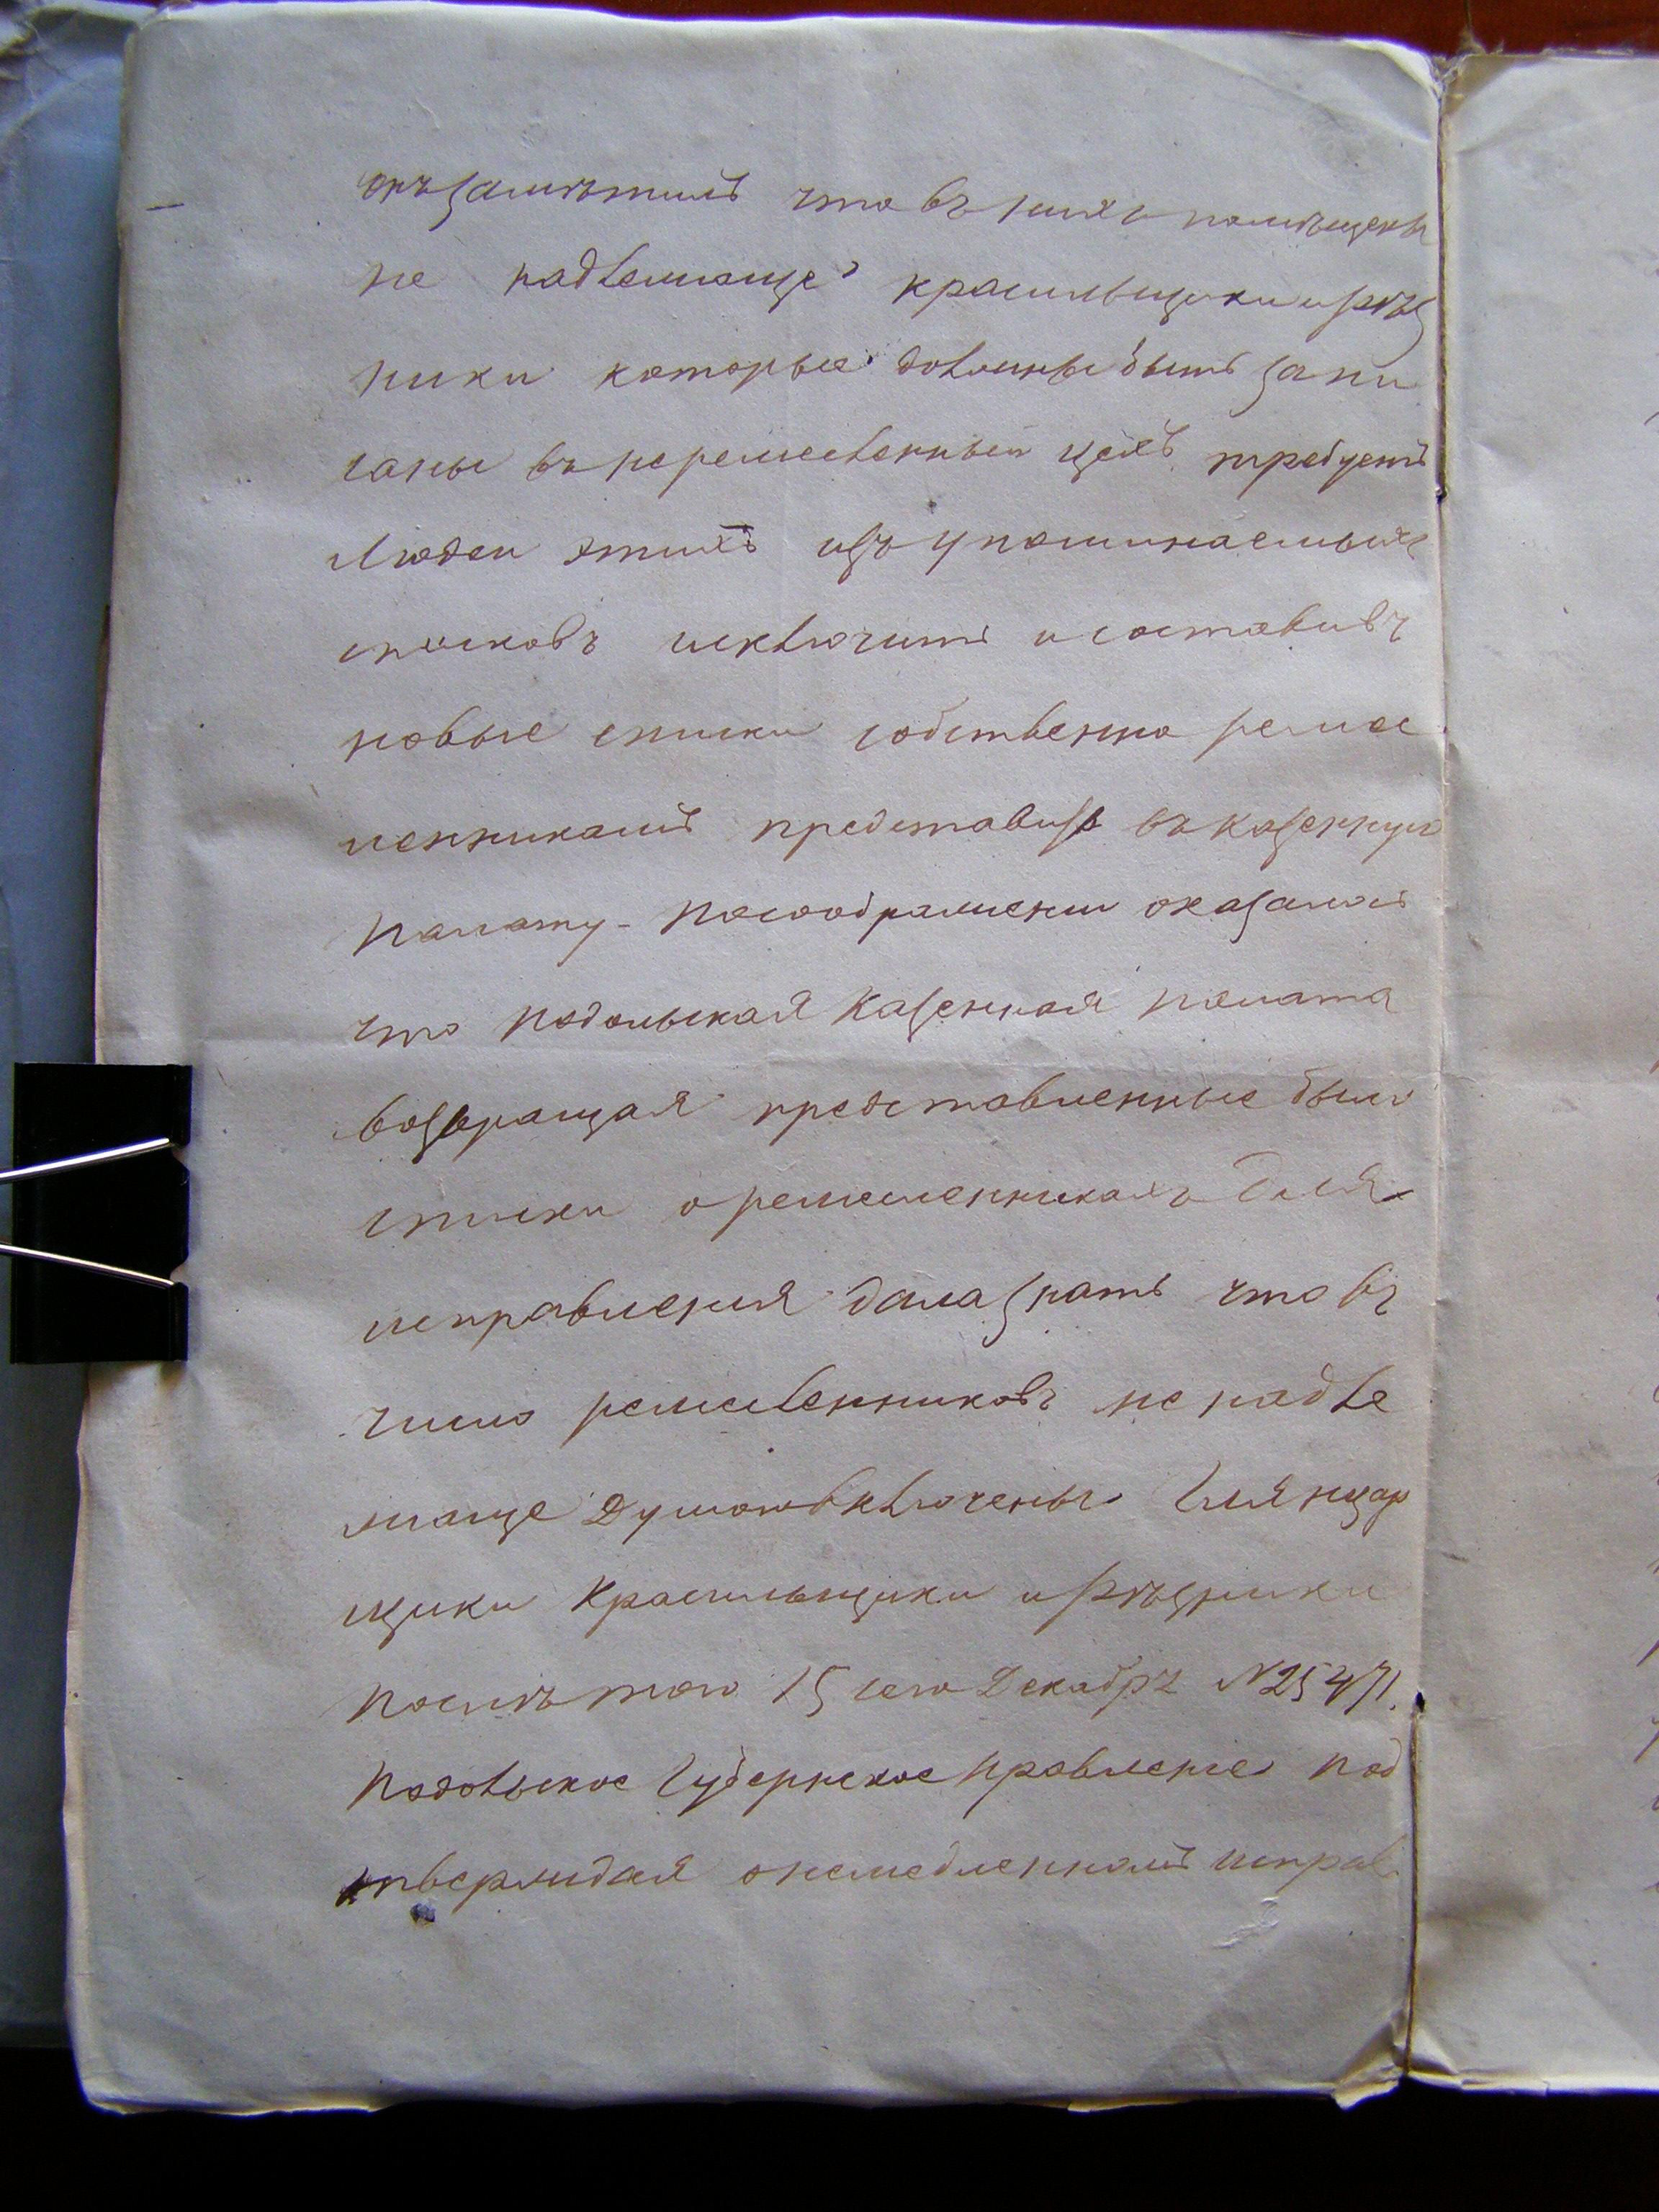 онъ замѣтилъ что въ нихъ помѣщены
не надлежаще красильщики и рѣз
ники которые должны быть запи
саны въ неремесленный цехъ, требуетъ
Людей этихъ изъ упоминаемыхъ
списковъ исключить и составивъ
новые списки собственно ремес
ленникамъ представить въ казенную
палату - по соображении оказалось
что Подольская Казенная палата
возвращая представленные было
списки о ремесленникахъ для
исправления дала знать что въ
число ремесленниковъ не надле
жаще Думою включены
щики Красильщики и рѣзники
послѣ того 15 сего Декабря №25471.
Подольское Губернское правление под
тверждая о немедленномъ исправ